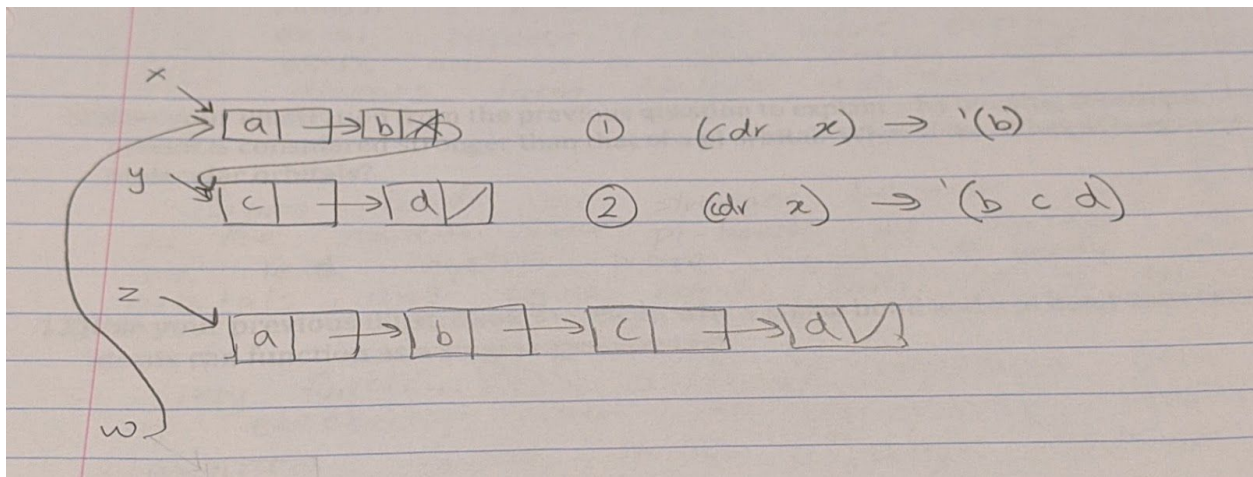 x
a b ① (cdr x) → '(b)
y
c d ② (cdr x) → '(b c d)
z
a b c d
w